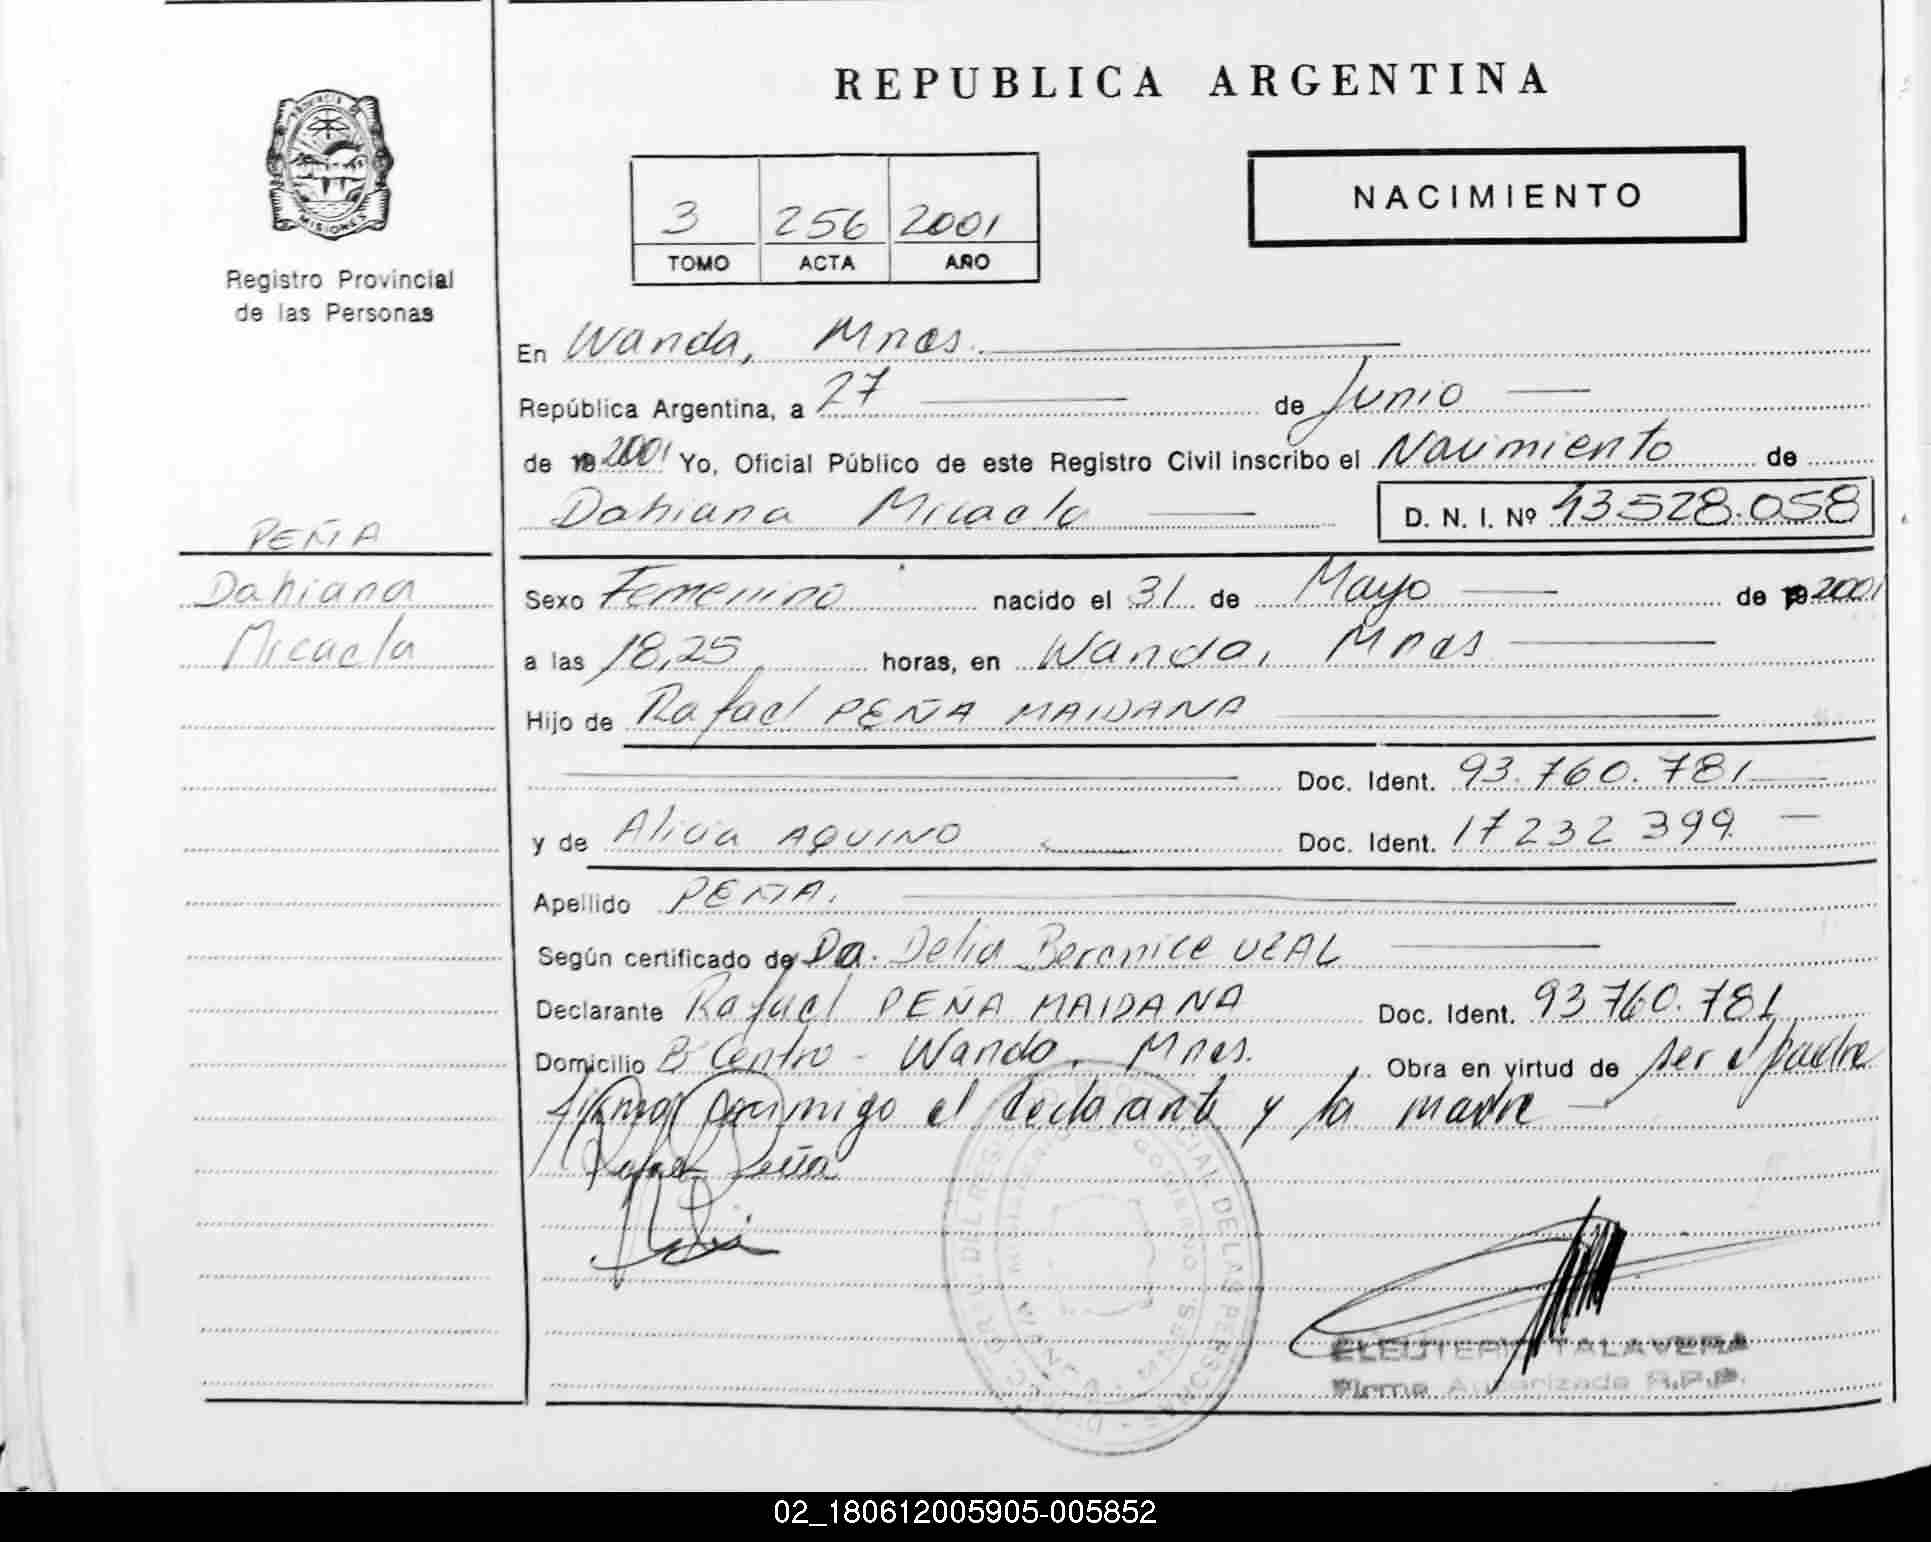 REPUBLICA ARGENTINA
PROVINCIA DE
MISIONES
Registro Provincial
de las Personas
NACIMIENTO
3 256 2001
TOMO ACTA AÑO
En Wanda, Mnes.
República Argentina, a 27 de Junio
de 19 2001 Yo, Oficial Público de este Registro Civil inscribo el Nacimiento de
Dahiana Micaela D. N. I. Nº 43528.058
PEÑA
Dahiana
Micaela
Sexo Femenino nacido el 31 de Mayo de 19 2001
a las 18,25 horas, en Wanda, Mnes
Hijo de Rafael PEÑA MAIDANA
Doc. Ident. 93.760.781
y de Alicia AQUINO Doc. Ident. 17232399
Apellido PEÑA.
Según certificado de Da. Delia Berenice VEAL
Declarante Rafael PEÑA MAIDANA Doc. Ident. 93760.781
Domicilio Bº Centro - Wanda, Mnes. Obra en virtud de ser el padre
firma conmigo el declarante y la madre
Rafael Peña
ELEUTERIO TALAVERA
Firma Autorizada R.P.P.
02_180612005905-005852